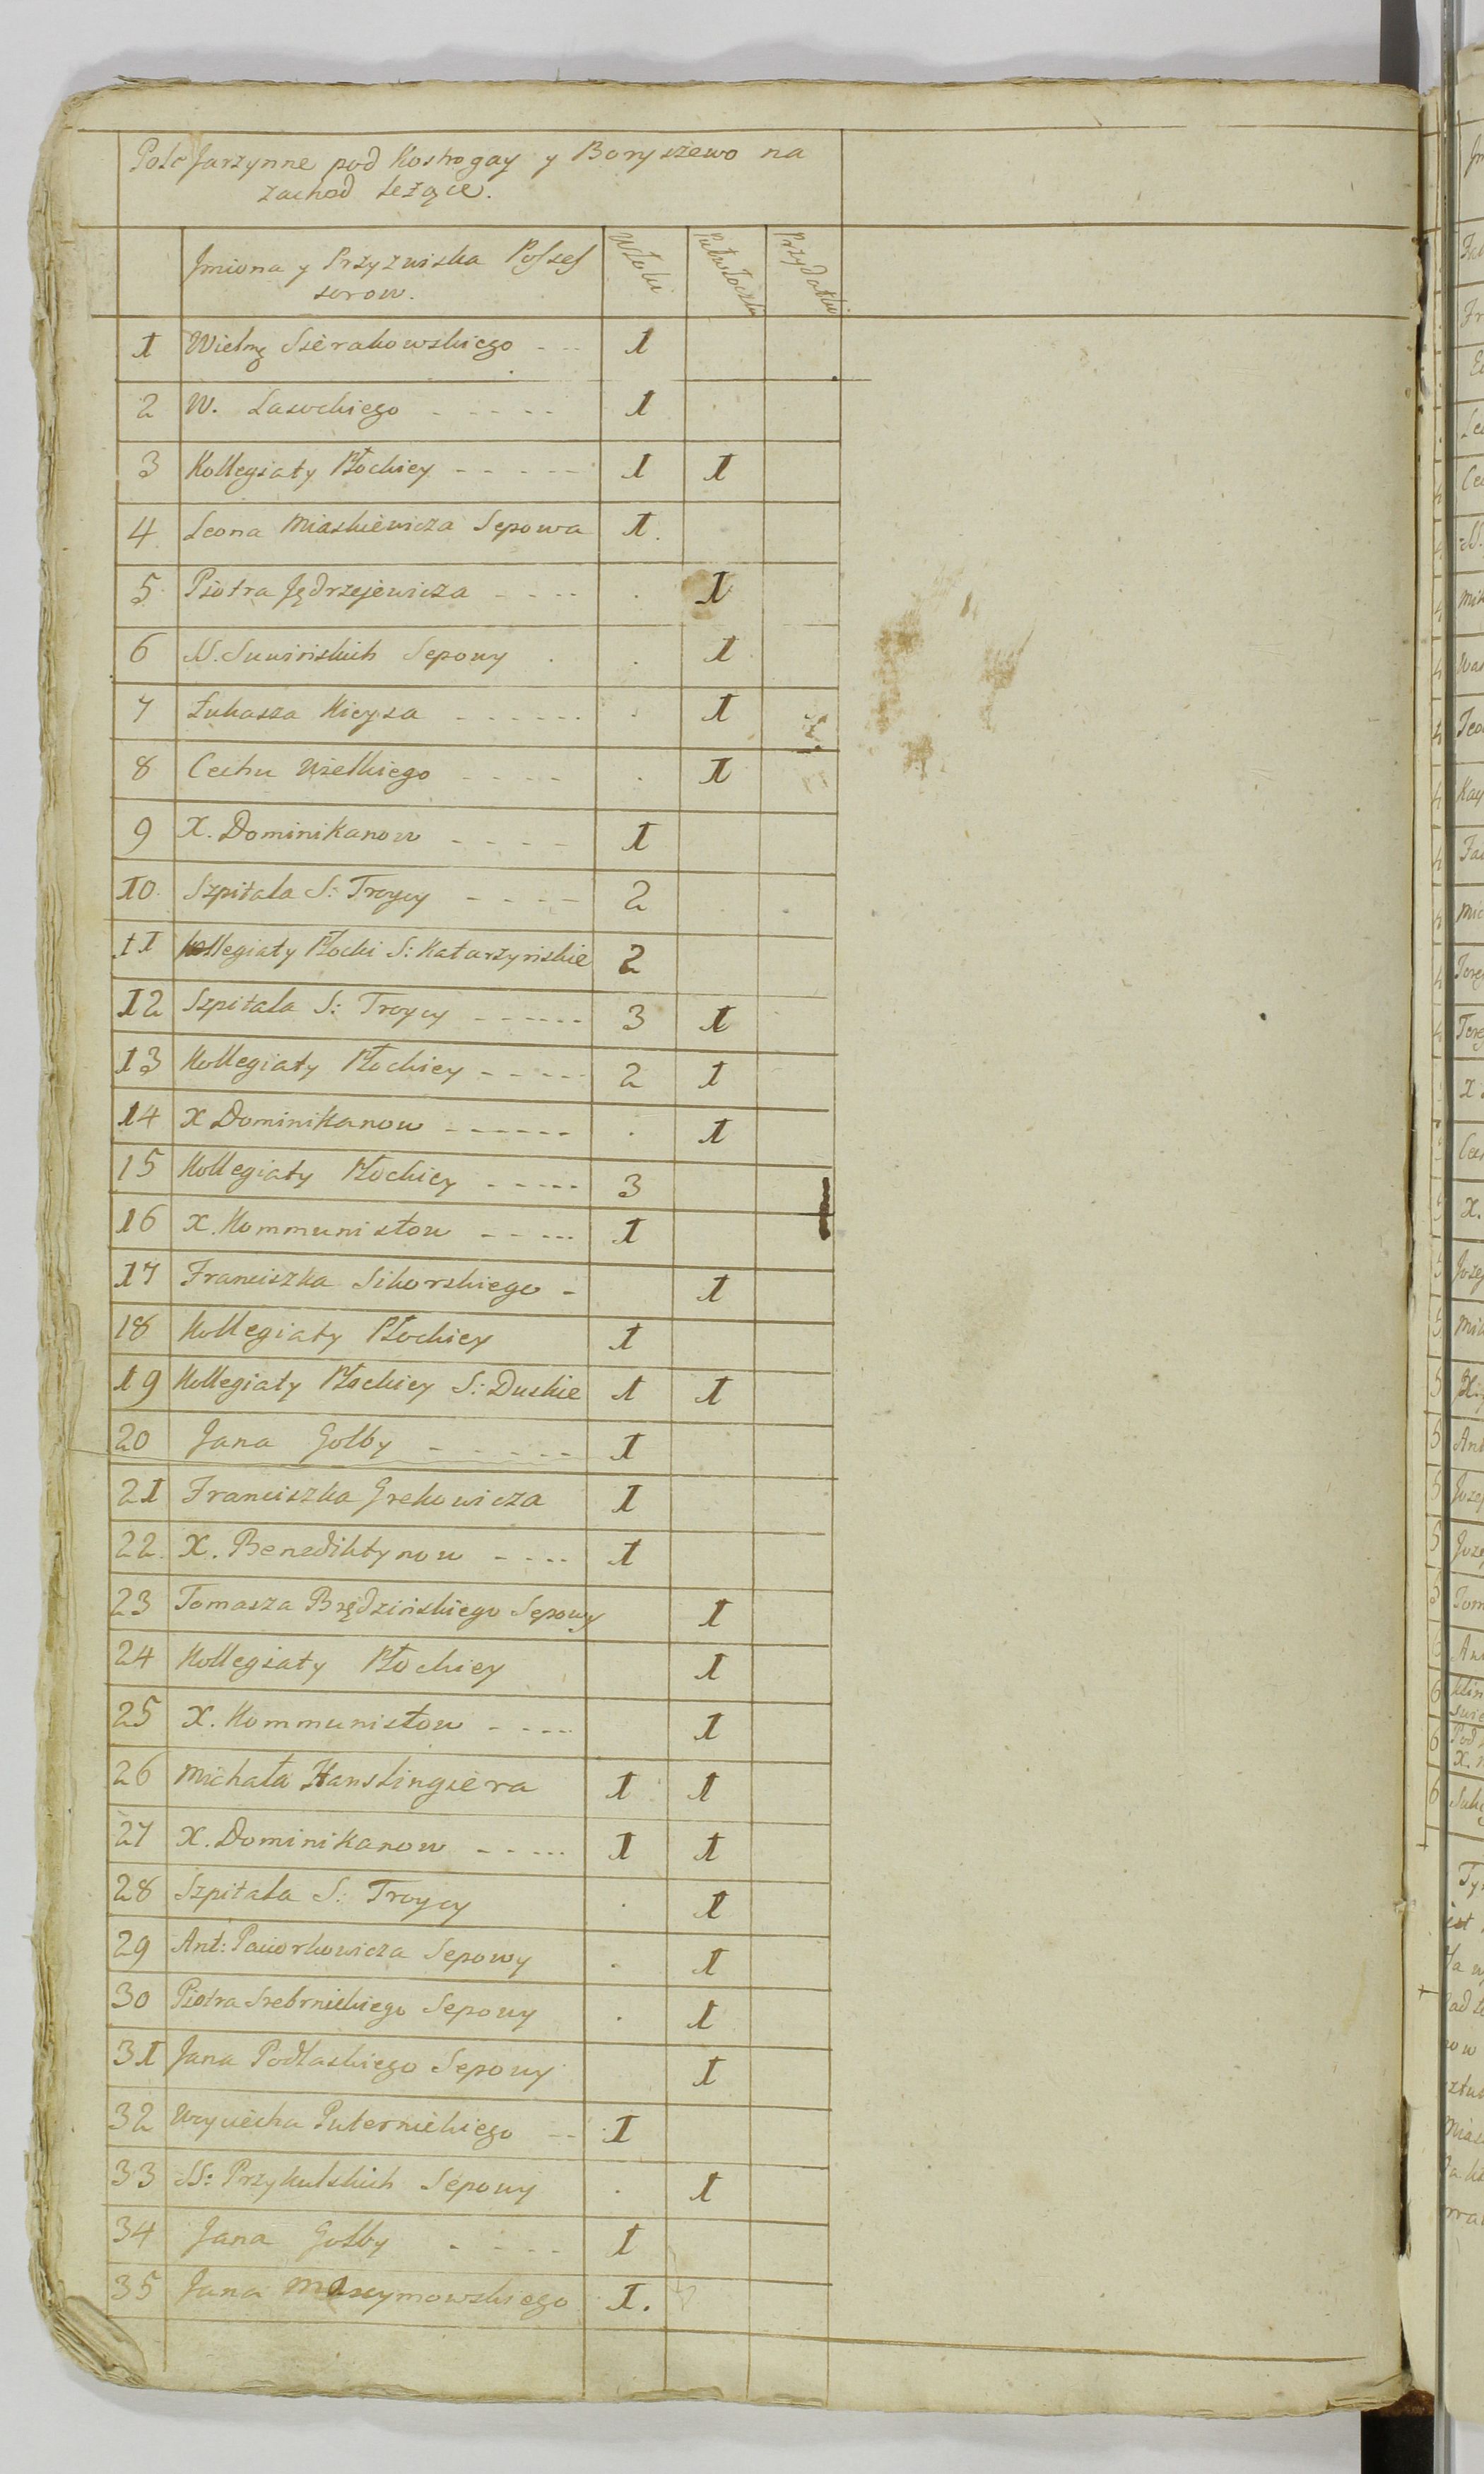 Pole Jarzynne pod Kostrogay y Boryszewo na
zachod Leżące.
Jmiona y Przyzwiska Posses
sorow. Włoki Pułwłoczki Przydatki
1 Wielmę Sierakowskiego - - - 1
2 W. Lasockiego - - - - - 1
3 Kollegiaty Płockiey - - - - - 1 1
4 Leona Miaskiewicza Sepowa 1.
5 Piotra Jędrzejewicza - - - - . 1
6 SS. Suwińskich Sepowy . . 1
7 Łukasza Kieysa - - - - - - . 1
8 Cechu Wielkiego - - - - . 1
9 X. Dominikanow - - - - 1
10 Szpitala S: Troycy - - - - 2
11 Kollegiaty Płocki S: Katarzyńskie 2
12 Szpitala S: Troycy - - - - - - 3 1
13 Kollegiaty Płockiey - - - - - 2 1
14 X Dominikanow - - - - - - . 1
15 Kollegiaty Płockiey - - - - - 3
16 X. Kommunistow - - - - - 1
17 Franciszka Sikorskiego - 1
18 Kollegiaty Płockiey 1
19 Kollegiaty Płockiey S: Duskie 1 1
20 Jana Golby - - - - - - 1
21 Franciszka Grekowicza 1
22. X. Benediktynow - - - - 1
23 Tomasza Brędzińskiego Sępowy 1
24 Kollegiaty Płockiey 1
25 X. Kommunistow - - - - 1
26 Michała Hanslingiera 1 1
27 X. Dominikanow - - - - - 1 1
28 Szpitala S: Troycy . 1
29 Ant: Paciorkowicza Sepowy . 1
30 Piotra Srebrnickiego Sepowy . 1
31 Jana Podlaskiego Sepowy 1
32 Woyciecha Puternickiego - - 1
33 SS: Przykulskich Sepowy . 1
34 Jana Golby . - - - 1
35 Jana Maxymowskiego 1.